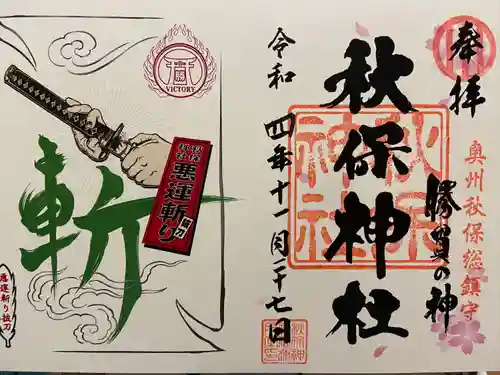 奉拝
奥州秋保総鎮守
勝負の神
秋保神社
秋保神社
令和四年十一月二十七日
VICTORY
勝
斬
秋保神社
悪運斬り
悪運斬り抜刀